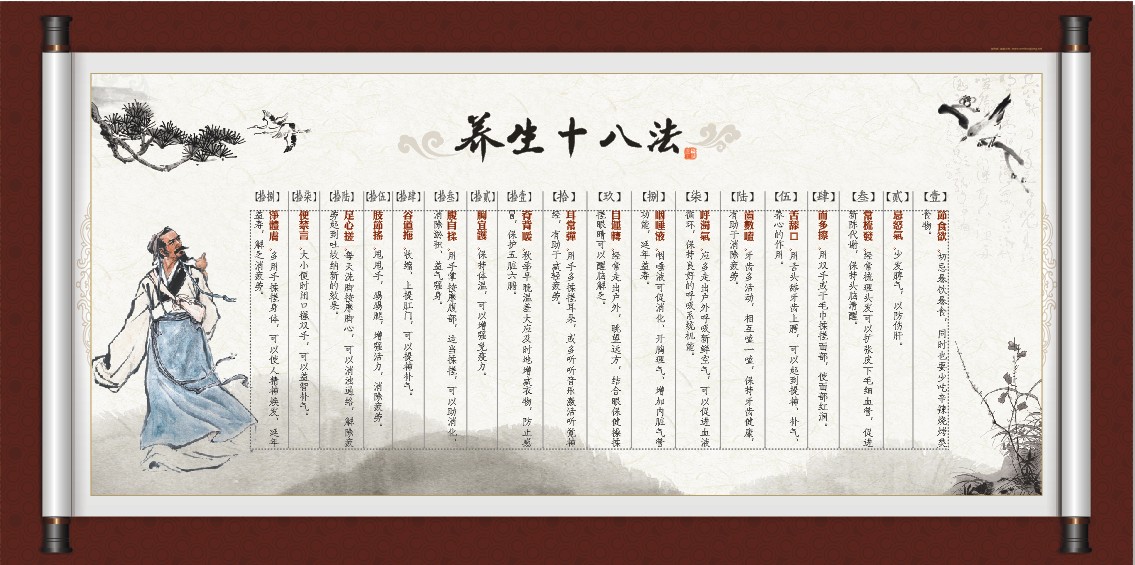 养生十八法
【壹】
節食欲，切忌暴饮暴食，同时也要少吃辛辣烧烤类
食物。
【贰】
忌怒氣，少发脾气，以防伤肝。
【叁】
常梳發，经常梳理头发可以扩张皮下毛细血管，促进
新陈代谢，保持头脑清醒。
【肆】
面多擦，用双手或干毛巾揉搓面部，使面部红润。
【伍】
舌舔口，用舌头舔牙齿上腭，可以起到提神、补气、
养心的作用。
【陆】
齒數嗑，牙齿多活动，相互嗑一嗑，保持牙齿健康，
有助于消除疲劳。
【柒】
呼濁氣，应多走出户外呼吸新鲜空气，可以促进血液
循环，保持良好的呼吸系统机能。
【捌】
咽唾液，咽唾液可促消化，开胸理气，增加内脏气管
功能，延年益寿。
【玖】
目運轉，经常走出户外，眺望远方，结合眼保健操揉
搓眼睛可以醒脑解乏。
【拾】
耳常彈，用手多揉搓耳朵，或多听听音乐激活听觉神
经，有助于减轻疲劳。
【拾壹】
脊背暖，秋季早晚温差大应及时地增减衣物，防止感
冒，保护五脏六腑。
【拾贰】
胸宜護，保持体温，可以增强免疫力。
【拾叁】
腹自揉，用手掌按摩腹部，适当揉搓，可以助消化，
消除淤积，益气强身。
【拾肆】
谷道拖，收缩、上提肛门，可以提神补气。
【拾伍】
肢節搖，甩甩手，踢踢腿，增强活力，消除疲劳。
【拾陆】
足心搓，每天洗脚按摩脚心，可以消浊通络，解除疲
劳起到吐故纳新的效果。
【拾柒】
便禁言，大小便时闭口握双手，可以益智补气。
【拾捌】
淨體膚，多用手揉搓身体，可以使人精神焕发，延年
益寿，解乏消疲劳。